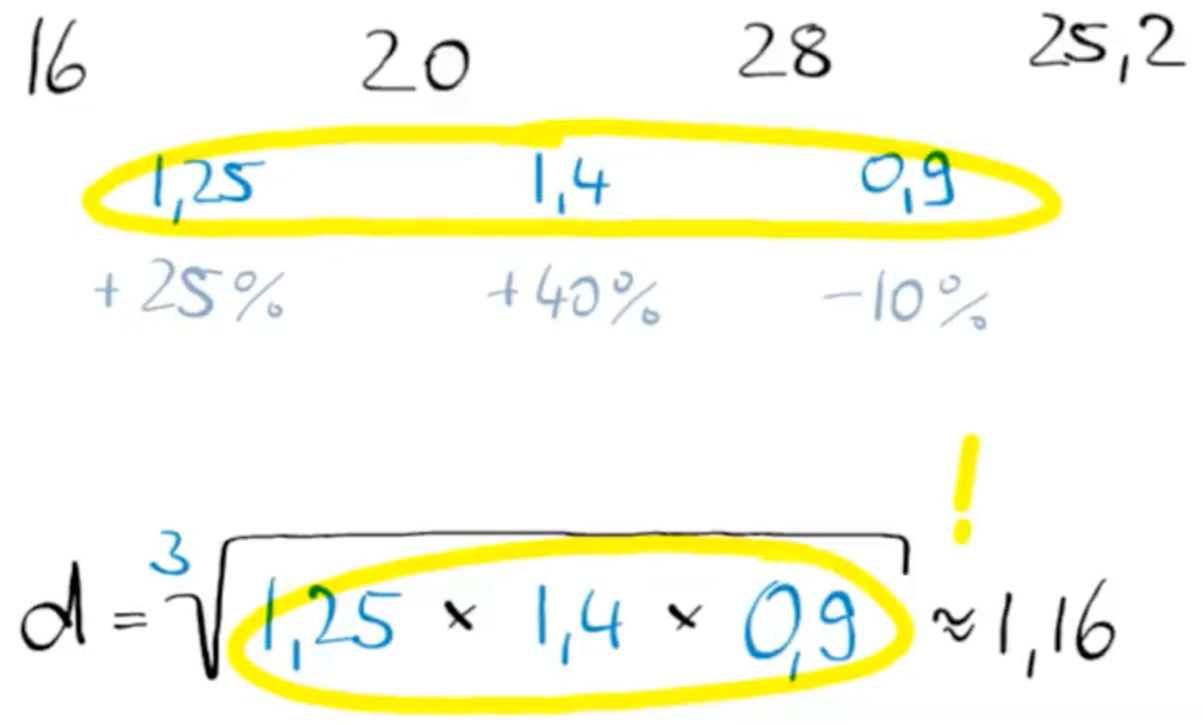 16 20 28 25,2
1,25 1,4 0,9
+25% +40% -10%
!
d = ∛(1,25 × 1,4 × 0,9) ≈ 1,16